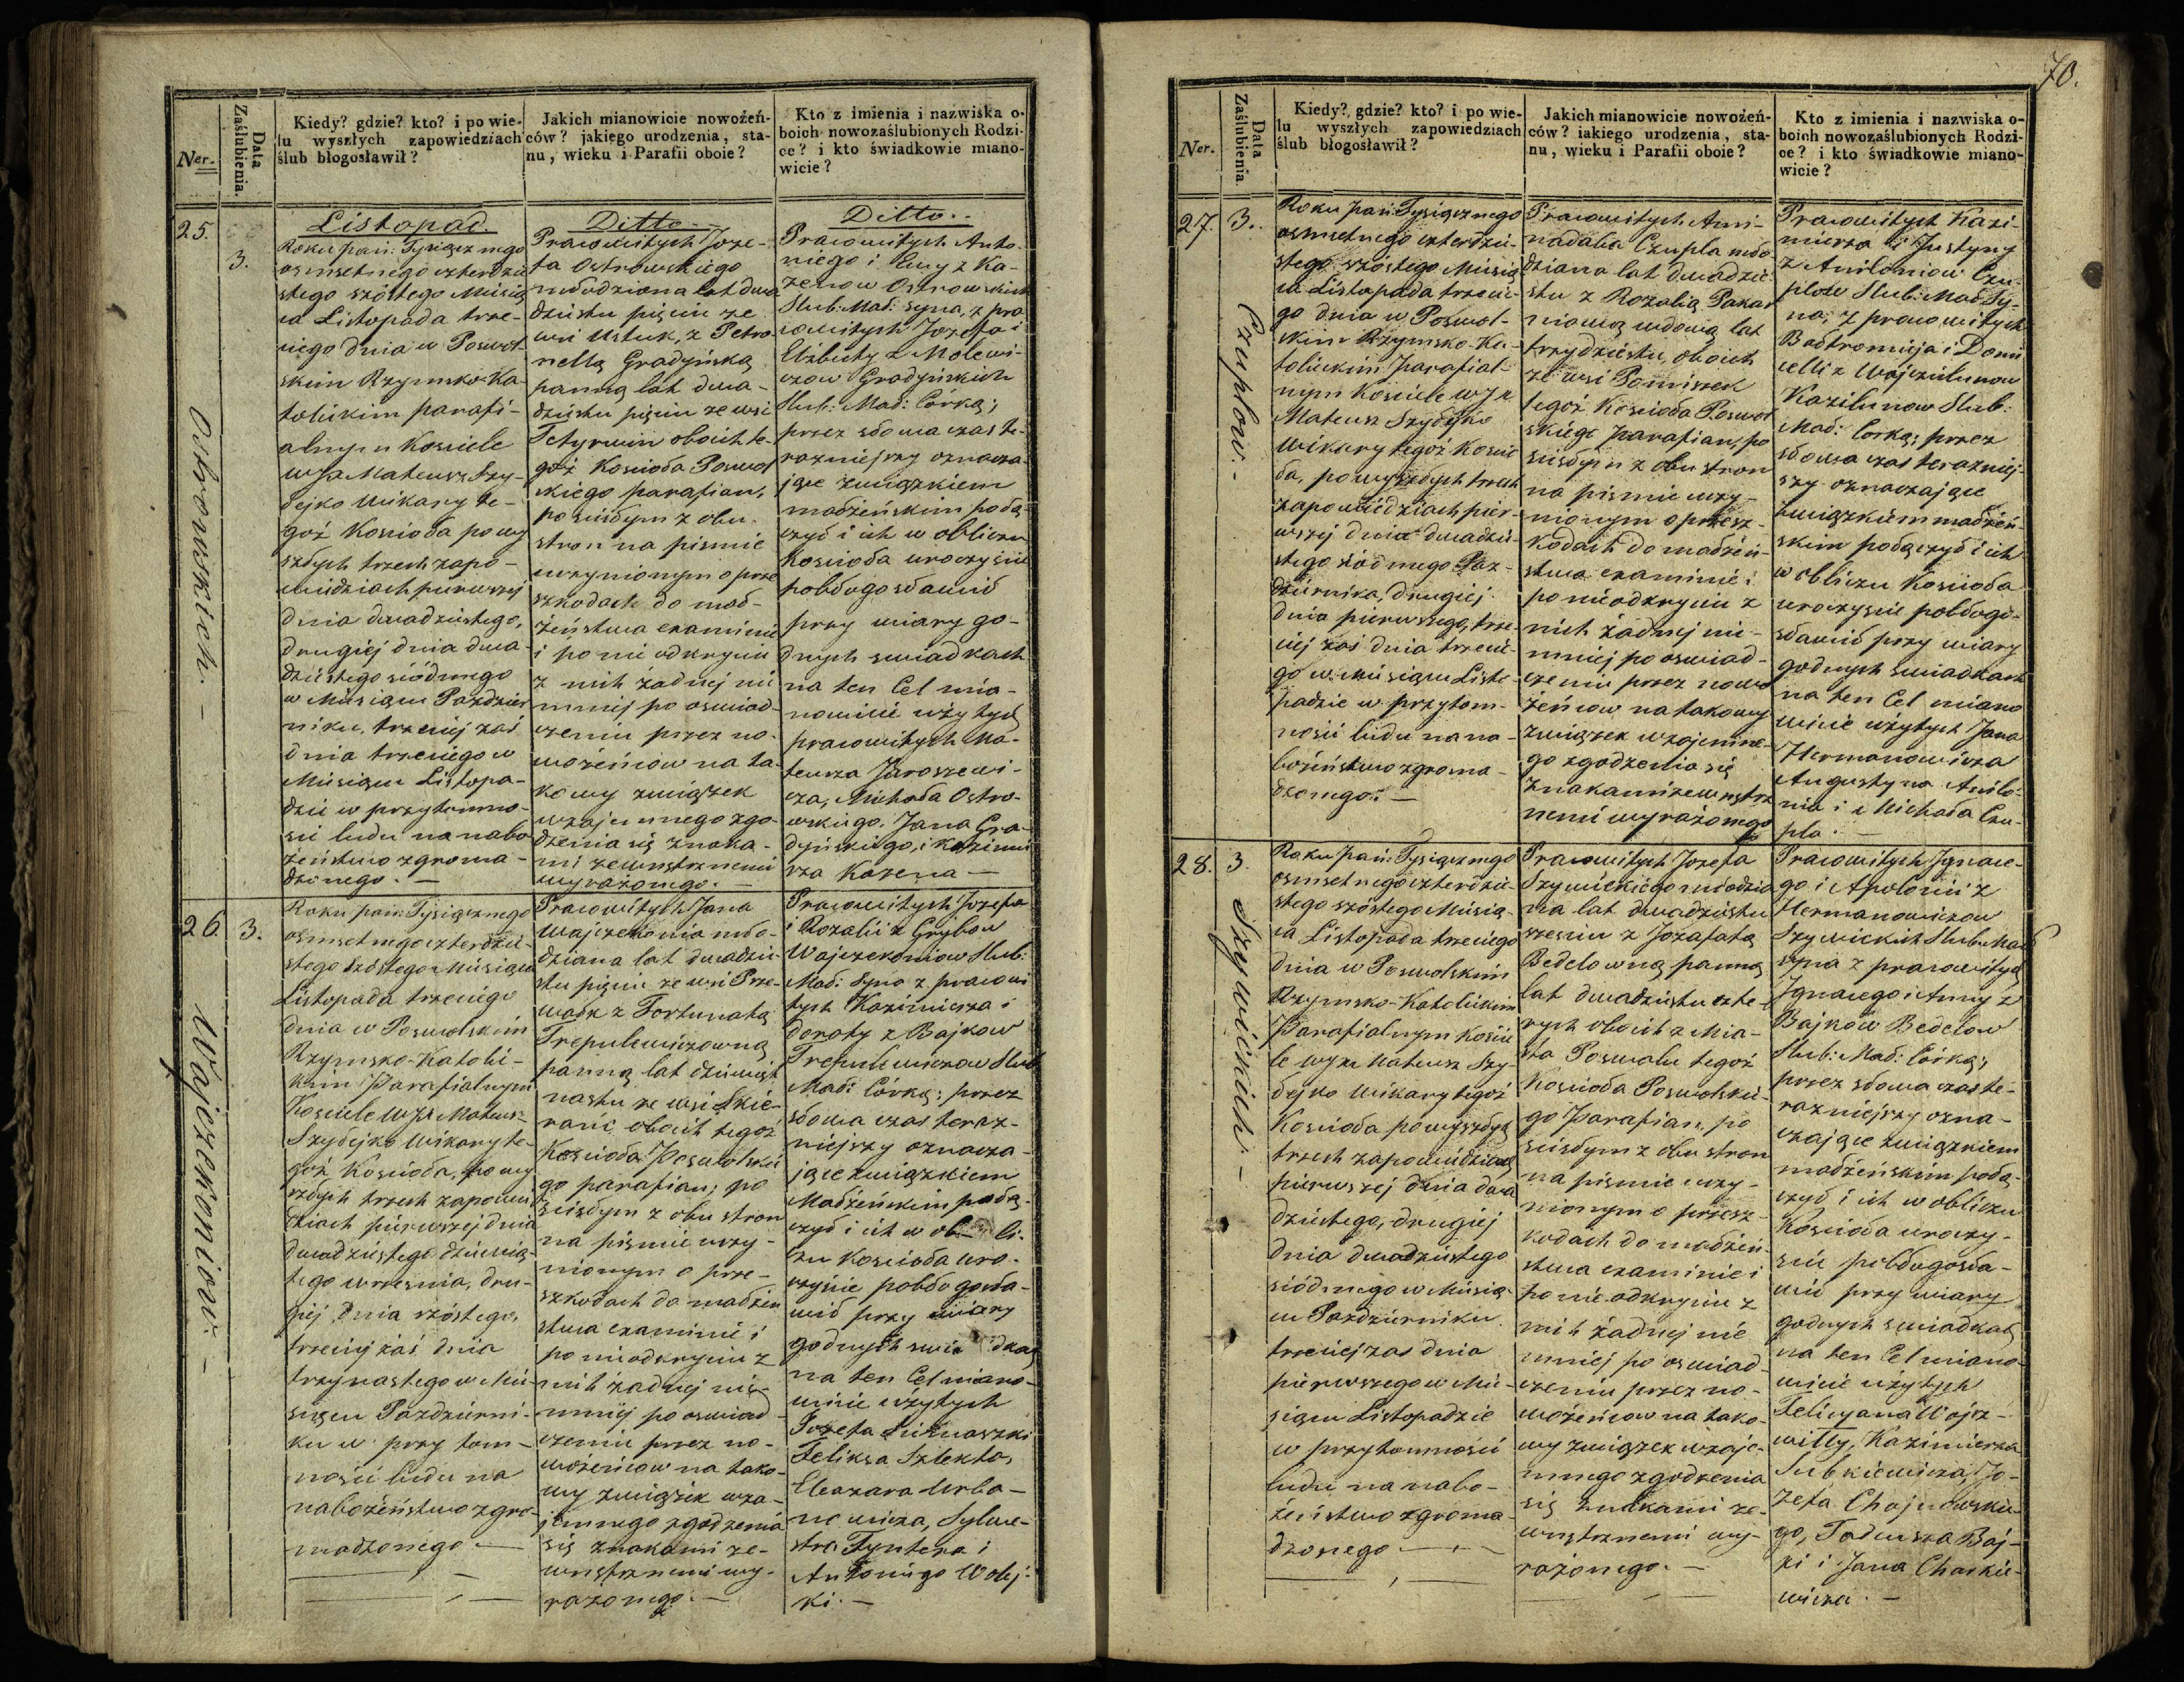 70.
Ner.
Data Zaślubienia.
Kiedy? gdzie? kto? i po wie-
lu wyszłych zapowiedziach
ślub błogosławił?
Jakich mianowicie nowożeń-
ców? jakiego urodzenia, sta-
nu, wieku i Parafii oboie?
Kto z imienia i nazwiska o-
boich nowozaślubionych Rodzi-
ce? i kto świadkowie miano-
wicie?
25.
3.
Ostrowskich.
Listopad.
Roku pań: Tysiącznego
osmsetnego czterdzie
stego szóstego Miesią
ca Listopada trze-
ciego dnia w Poswol
skim Rzymsko-Ka-
tolickim parafi-
alnym Kosciele
WJX Mateusz Szy-
dejko Wikary te-
goż Kościoła po wy
szłych trzech zapo-
wiedziach pierwszej
dnia dwadziestego,
drugiéj dnia dwa-
dziestego siódmego
w Miesiącu Pazdzier
niku, trzeciéj zaś
dnia trzeciego w
Miesiącu Listopa-
dzie w przytomno-
sci ludu na nabo
żeństwo zgroma-
dzonego. —
Ditto.
Pracowitych Joze-
fa Ostrowskiego
młodziana lat dwa
dziestu pięciu ze
wsi Ustuk, z Petro
nellą Gradyńską
panną lat dwa-
dziestu pięciu ze wsi
Tetyrwin oboich te-
goż Kościoła Poswol
skiego parafian,
po scisłym z obu
stron na pismie
uczynionym o prze
szkodach do mał-
żeństwa examinie
i po nie odkryciu
z nich żadnej nie
mniej po oswiad-
czeniu przez no-
wożeńcow na ta-
kowy związek
wzajemnego zgo-
dzenia się znaka-
mi zewnętrznemi
wyrażonego. —
Ditto.
Pracowitych Anto-
niego i Ewy z Ka-
zenow Ostrowskich
Slub: Mał: syna, z pra
cowitych Jozefa i
Elzbiety z Molewi-
czow Gradyńskich
Slub: Mał: Córką;
przez słowa czas te-
razniejszy oznacza-
jące związkiem
małżeńskim połą-
czył i ich w obliczu
Kościoła uroczyscie
pobłogosławił
przy wiary go-
dnych swiadkach
na ten Cel mia-
nowicie użytych
pracowitych Ma-
teusza Jaroszewi-
cza, Michała Ostro-
wskiego, Jana Gra-
dyńskiego, i Kazimie
rza Kazena —
26.
3.
Wajczekoniow.
Roku pań: Tysiącznego
osmsetnego czterdzie-
stego Szóstego Miesiąca
Listopada trzeciego
dnia w Poswolskim
Rzymsko-Katoli-
kim Parafialnym
Kosciele WJX Mateusz
Szydejko Wikary te-
goż Kościoła, po wy
szłych trzech zapowie
dziach pierwszej dnia
dwadziestego dziewią-
tego wrzesnia, dru-
giéj dnia szóstego,
trzeciéj zaś dnia
trzynastego w Mie-
siącu Pazdzierni-
ku w przytom-
nosci ludu na
nabożeństwo zgro-
madzonego —
Pracowitych Jana
Wajczekonia mło-
dziana lat dwadzie-
stu pięciu ze wsi Prze-
walk z Fortunatą
Trepulewiczowną
panną lat dziewięt
nastu ze wsi Skie-
ranie oboich tegoż
Kościoła Poswolskie
go parafian; po
scisłym z obu stron
na pismie uczy-
nionym o prze-
szkodach do małżeń
stwa examinie i
po nieodkryciu z
nich żadnej nie-
mniéj po oswiad
czeniu przez no-
wożeńcow na tako-
wy związek wza-
jemnego zgodzenia
się znakami ze-
wnętrznemi wy-
rażonego. —
Pracowitych Jozefa
i Rozalii z Grybow
Wajczekoniow Slub:
Mał: Syna z pracowi
tych Kazimierza i
doroty z Bajkow
Trepulewiczow Slub
Mał: Córką; przez
słowa czas teraz-
niejszy oznacza-
jące związkiem
Małżeńskim połą-
czył i ich w obli-
czu Kościoła uro-
czyscie pobłogosła-
wił przy wiary
godnych swiadkach
na ten Cel miano-
wicie użytych
Feliksa Szlekta,
Eleazara Urba-
nowicza, Sylwe-
stra Tyntera i
Antoniego Wolej-
ki. —
Ner.
Data Zaślubienia.
Kiedy? gdzie? kto? i po wie-
lu wyszłych zapowiedziach
ślub błogosławił?
Jakich mianowicie nowożeń-
ców? iakiego urodzenia, sta-
nu, wieku i Parafii oboie?
Kto z imienia i nazwiska o-
boich nowozaślubionych Rodzi-
ce? i kto świadkowie miano-
wicie?
27.
3.
Czuplow.
Roku pań: Tysiącznego
osmsetnego czterdzie-
stego szóstego Miesią
ca Listopada trzecie-
go dnia w Poswol-
skim Rzymsko-Ka-
tolickim Parafial-
nym Kosciele WJX
Mateusz Szydejko
Wikary tegoż Koscio
ła, po wyszłych trzech
zapowiedziach pier-
wszéj dnia dwadzie-
stego siódmego Paz-
dziernika, drugiéj
dnia pierwszego, trze-
ciéj zaś dnia trzecie-
go w Miesiącu Listo-
padzie w przytom-
nosci ludu na na-
bożeństwo zgroma-
dzonego. —
Pracowitych
Czupla mło
dziana lat dwadzie-
stu z Rozalią Pakar
niową wdową lat
trzydziestu, oboich
ze wsi Pomiszek
tegoż Kościoła Poswol
skiego Parafian, po
scisłym z obu stron
na pismie uczy-
nionym o przesz-
kodach do małżeń-
stwa examinie i
po nieodkryciu z
nich żadnej nie-
mniéj po oswiad-
czeniu przez nowo
żeńcow na takowy
związek wzajemne-
go zgodzenia się
znakami zewnętrz
nemi wyrażonego
Pracowitych Kazi-
mierza i Justyny
z Anilioniow Czu-
plow Slub: Mał Sy-
na; z pracowitych
Bałtromieja i Domi
celli z Wajcziulunow
Kazilunow Slub:
Mał: Corką; przez
słowa czas terazniej-
szy oznaczające
Związkiem małżeń-
skim połączył i ich
w obliczu Kościoła
uroczyscie pobłogo-
sławił przy wiary
godnych swiadkach
na ten Cel miano
wicie użytych Jana
Hermanowicza
Augustyna Anilo-
nia i Michała Czu-
pla. —
28.
3.
Szywickich.
Roku Pań: Tysiącznego
osmsetnego czterdzie-
stego szóstego Miesią-
ca Listopada trzeciego
dnia w Poswolskim
Rzymsko-Katolickim
Parafialnym Koscie
le WJX Mateusz Szy-
dejko Wikary tegoż
Kościoła po wyszłych
trzech zapowiedziach
pierwszej dnia dwa
dziestego, drugiéj
dnia dwadziestego
siódmego w Miesią-
cu Pazdzierniku
trzeciéj zas dnia
pierwszego w Mie-
siącu Listopadzie
w przytomnosci
ludu na nabo-
żeństwo zgroma-
dzonego —
Pracowitych Jozefa
Szywickiego młodzia
na lat dwadziestu
szesciu z Jozafatą
Bedelowną panną
lat dwadziestu czte-
rych oboich z Mia-
sta Poswolu tegoż
Kościoła Poswolskie-
go Parafian, po
scisłym z obu stron
na pismie uczy-
nionym o przesz-
kodach do małżeń-
stwa examinie i
po nie odkryciu z
nich żadnej nie
mniej po oswiad
czeniu przez no-
wożeńcow na tako-
wy związek wzaje-
mnego zgodzenia
się znakami ze-
wnętrznemi wy-
rażonego. —
Pracowitych Ignace-
go i Apolonii z
Hermanowiczow
Szywickich Slub: Mał
syna z pracowitych
Ignacego i Anny z
Bajkow Bedelow
Slub: Mał: Córką;
przez słowa czas te-
razniejszy ozna-
czające związkiem
małżeńskim połą-
czył i ich w obliczu
Kościoła uroczy-
scie pobłogosła-
wił przy wiary
godnych swiadkach
na ten Cel miano-
wicie użytych
Felicyana Wojsz-
wiłły, Kazimierza
Jo-
zefa Chojnowskie-
go, Tadeusza Baj-
ki i Jana Charkie-
wicza. —